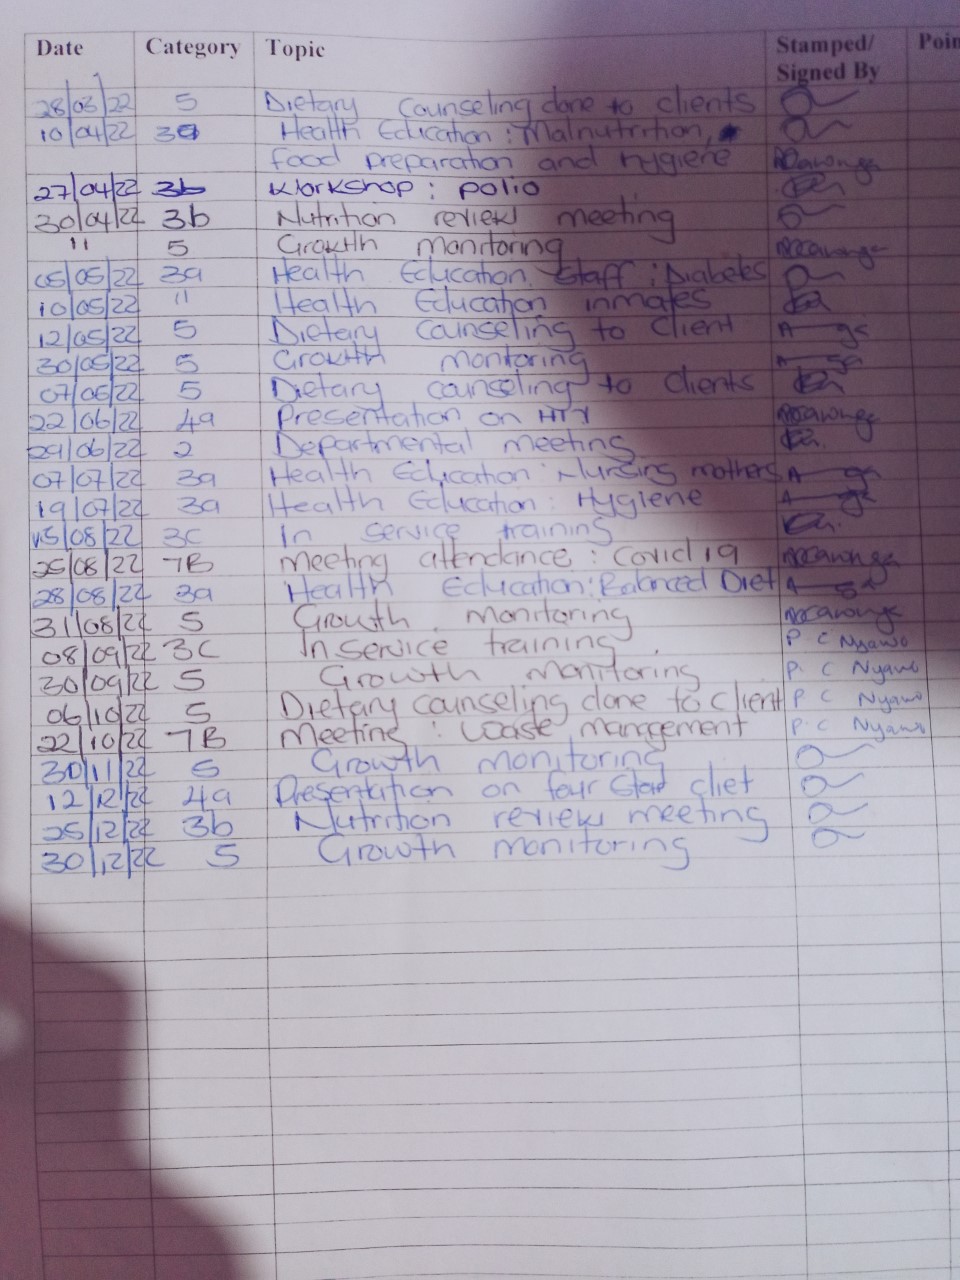 Date Category Topic Stamped/ Poin
Signed By
28/03/22 5 Dietary Counseling done to clients
10/04/22 3a Health Education : Malnutrition,
food preparation and hygiene
27/04/22 3b Workshop : polio
30/04/22 3b Nutrition review meeting
" 5 Growth monitoring
05/05/22 3a Health Education Staff : Diabetes
10/05/22 " Health Education inmates
12/05/22 5 Dietary counseling to client
30/05/22 5 Growth monitoring
07/06/22 5 Dietary counseling to clients
22/06/22 4a Presentation on
29/06/22 2 Departmental meeting
07/07/22 3a Health Education : Nursing mothers
19/07/22 3a Health Education : Hygiene
15/08/22 3c In service training
25/08/22 7B Meeting attendance : Covid 19
28/08/22 3a Health Education : Balanced Diet
31/08/22 5 Growth monitoring
08/09/22 3C In service training P C Nyawo
30/09/22 5 Growth monitoring P. C Nyawo
06/10/22 5 Dietary counseling done to client P C Nyawo
22/10/22 7B Meeting : Waste management P. C Nyawo
30/11/22 5 Growth monitoring
12/12/22 4a Presentation on four star diet
25/12/22 3b Nutrition review meeting
30/12/22 5 Growth monitoring